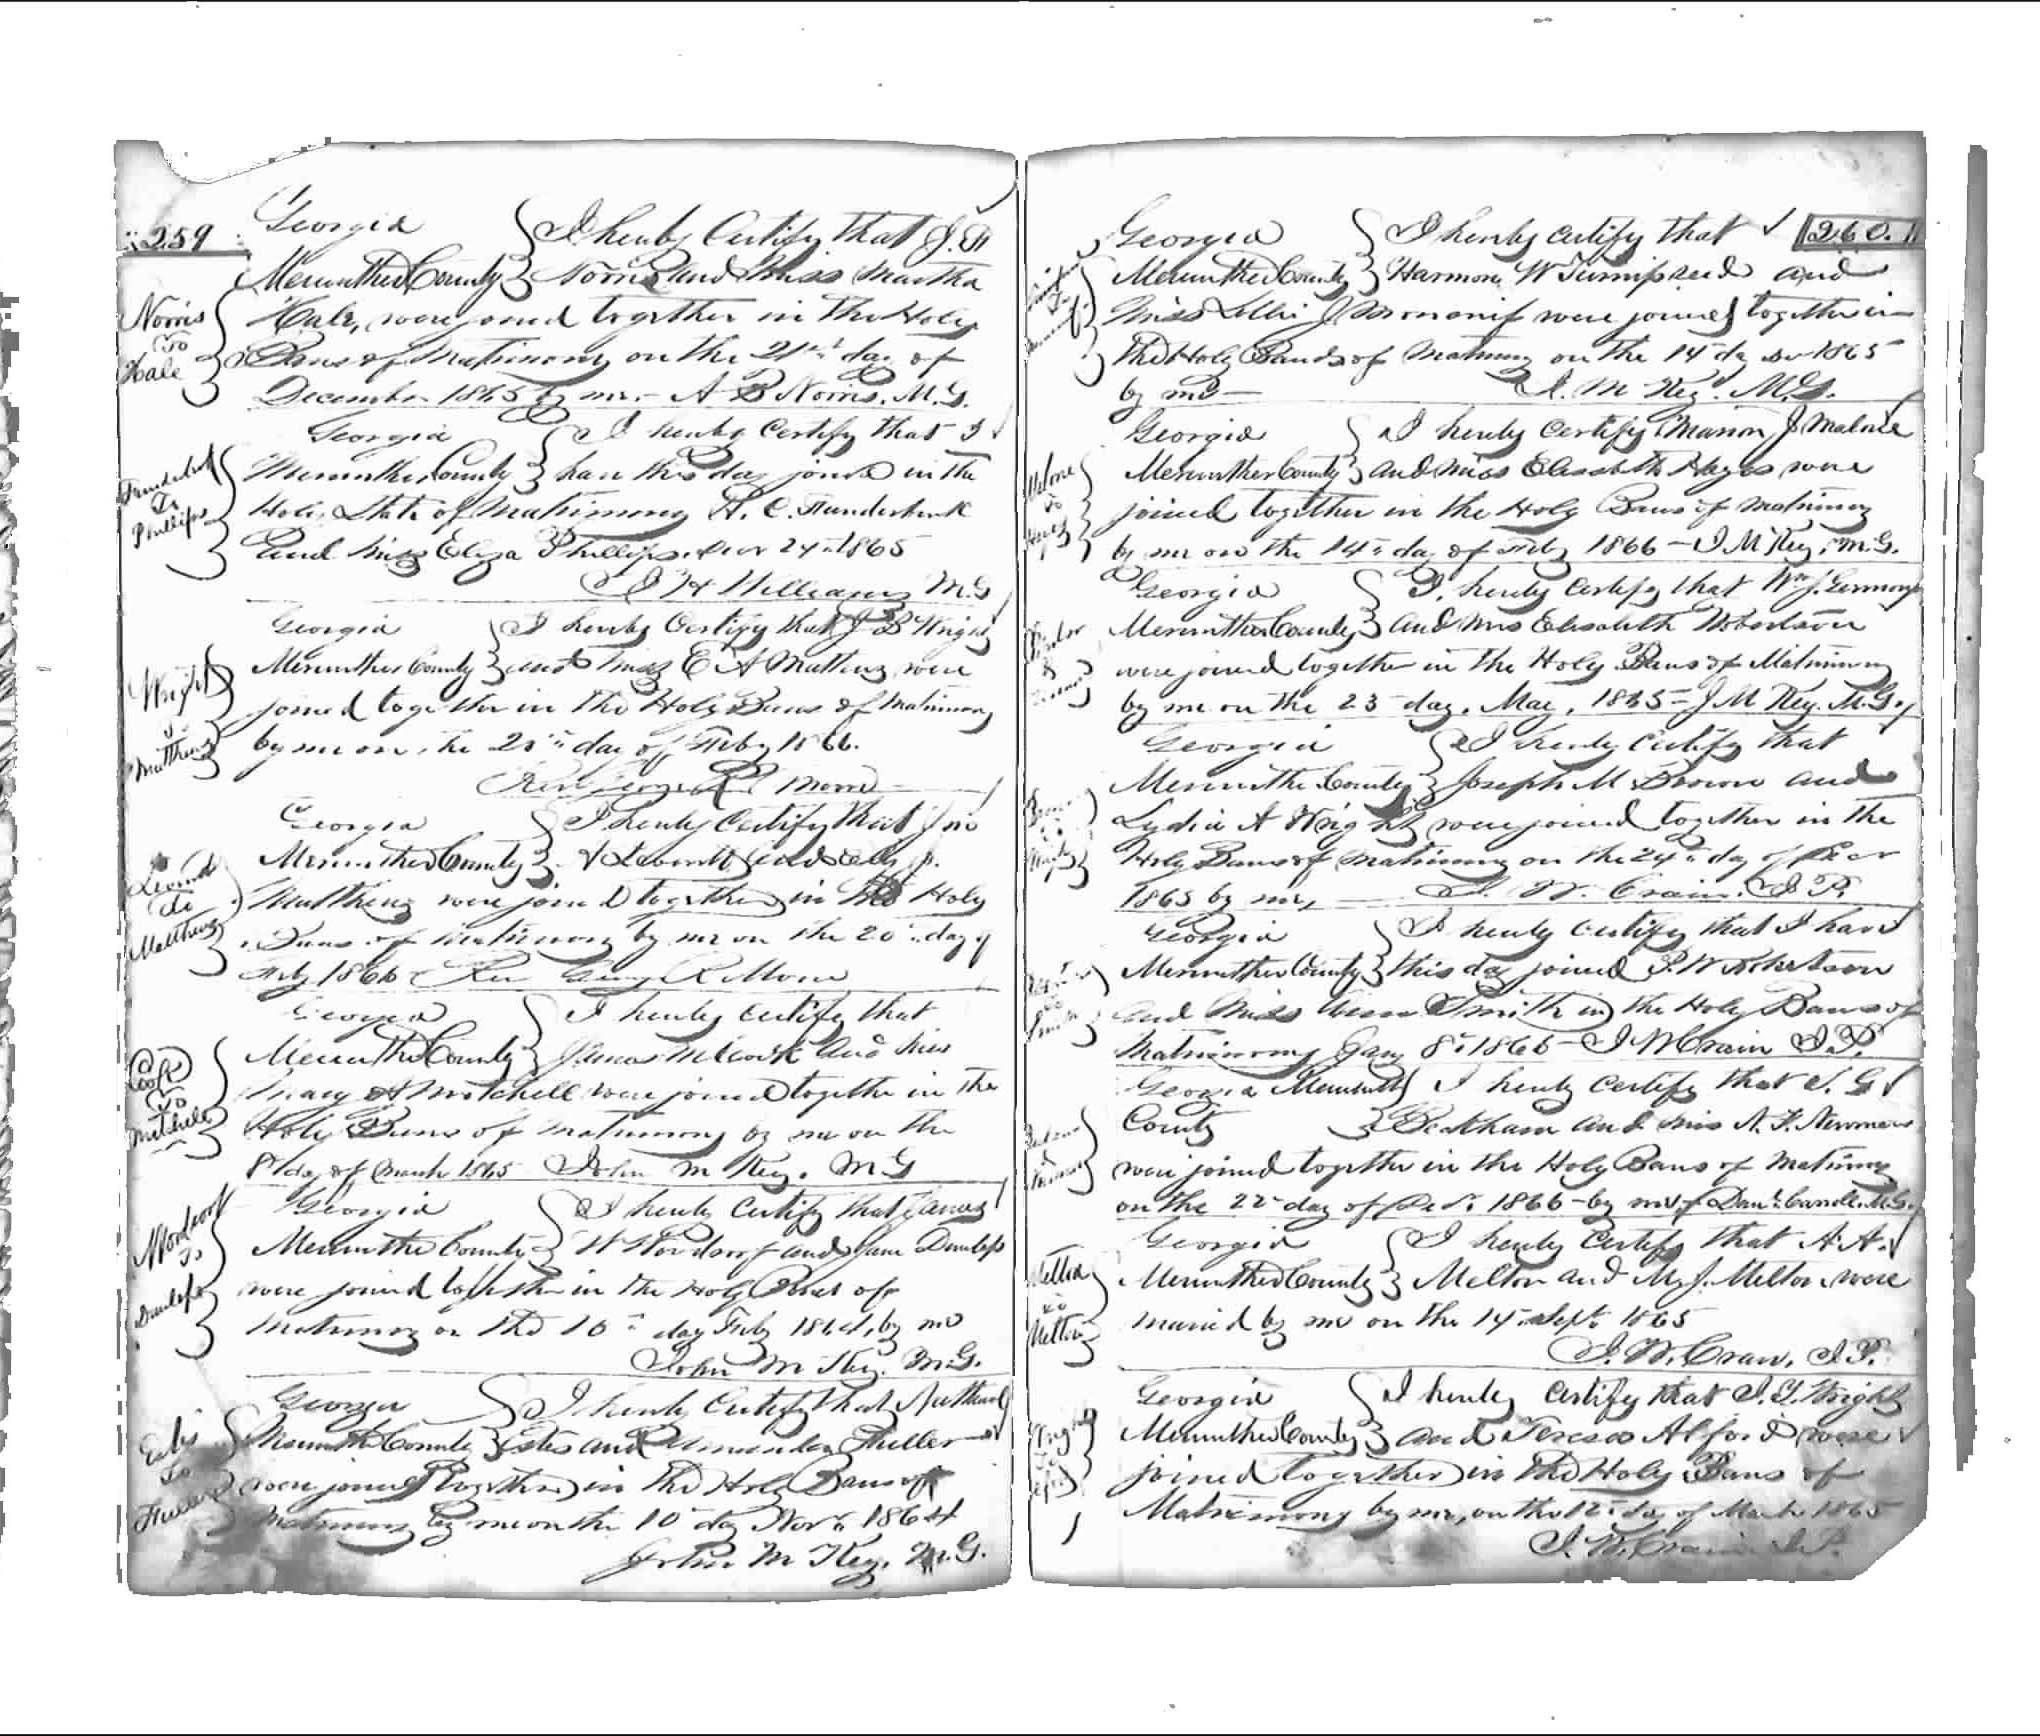 259
Georgia } I hereby Certify that J. A
Meriwether County } Norris and Miss Martha
Hale, were joined together in the Holy
Bans of Matrimony on the 21st day of
December 1865 by me. - A B Norris. M.G.
Norris
To
Hale
Georgia } I hereby Certify that I
Meriwether County } have this day joined in the
Holy State of Matrimony H. C. Funderburk
and Miss Eliza Phillips, Decr 24th 1865
J H Williams M.G
Funderburk
To
Phillips
Georgia } I hereby Certify that J B Wright
Meriwether County } and Miss E A Matthews were
joined together in the Holy Bans of Matrimony
by me on the day of Feby 1866.
Rev George R Moore
Wright
To
Matthews
Georgia } I hereby Certify that Jno
Meriwether County }
Matthews were joined together in the Holy
Bans of Matrimony by me on the 20th day of
Feby 1866 Rev George R Moore
To
Matthews
Georgia } I hereby certify that
Meriwether County } James M Cook and Miss
Mary A Mitchell were joined together in the
Holy Bans of Matrimony by me on the
8th day of March 1865 John M Key. M G
Cook
To
Mitchell
Georgia } I hereby Certify that James
Meriwether County } W Woodroof and Jane Dunlap
were joined together in the Holy Bans of
Matrimony on the 10th day Feby 1864, by me
John M Key. M.G.
Woodroof
To
Dunlap
Georgia } I hereby Certify that
Meriwether County } Estes and Amanda Fuller
were joined together in the Holy Bans of
Matrimony by me on the 10th day Novr 1864
John M Key. M.G.
Estes
To
Fuller
260.
Georgia } I hereby certify that
Meriwether County } Harmon W Turnipseed and
Miss Lellie J were joined together in
the Holy Bands of Matrimony on the 14 day 1865
by me - J. M Key. M.G.
Georgia } I hereby Certify Marion J Malone
Meriwether County } and Miss Elisabeth Hayes were
joined together in the Holy Bans of Matrimony
by me on the 14th day of Feby 1866 - J M Key, M.G.
Malone
to
Hayes
Georgia } I. hereby certify that Wm J.
Meriwether County } and Mrs Elisabeth Robertson
were joined together in the Holy Bans of Matrimony
by me on the 23 day. May, 1865 - J M Key. M.G.
Georgia } I hereby Certify that
Meriwether County } Joseph M Brown and
Lydia A Wright were joined together in the
Holy Bans of Matrimony on the 24th day of Decr
1865 by me, J. W. Crain. J P.
Georgia } I hereby certify that I have
Meriwether County } this day joined P. W Robertson
and Miss Smith in the Holy Bans of
Matrimony Jany 8th 1866 - J W Crain J.P.
Georgia Meriwether } I hereby Certify that J. G
County } Beckham and Miss N. F. Newman
were joined together in the Holy Bans of Matrimony
on the 22 day of 1866 - by me
Georgia } I hereby Certify that A. A.
Meriwether County } Melton and M. J. Melton were
married by me on the 14th Sept 1865
J. W. Crain, J.P.
Melton
to
Melton
Georgia } I hereby certify that J. Y. Wright
Meriwether County } and Teresa Alford were
joined together in the Holy Bans of
Matrimony by me, on the 12th day of March 1865
J. W. Crain J.P.